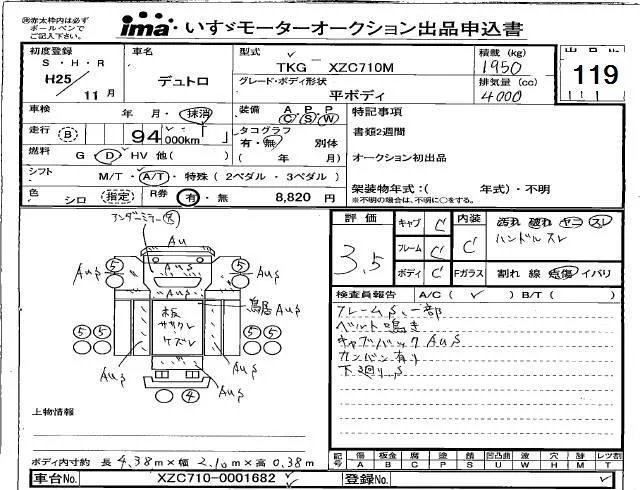 ※赤太枠内は必ず
ボールペンで
ご記入下さい。
ima いすゞモーターオークション出品申込書
初度登録
S・H・R
H25
11月
車名
デュトロ
型式
TKG － XZC710M
グレード・ボディ形状
平ボディ
積載 (kg)
1950
排気量 (cc)
4000
119
車検
年 月・抹消
装備 A P P
C S W
特記事項
走行 B 94,000km
タコグラフ
有・無 別体
( 年 月)
書類2週間
燃料 G D HV 他( )
オークション初出品
シフト M/T・A/T・特殊(2ペダル・3ペダル)
架装物年式：( 年式)・不明
※不明の場合は、不明に○をする。
色 シロ (指定)
R券 有・無 8,820 円
アンダーミラー欠
Au
AuS
5
AuS
5
AuS
鳥居 AuS
板
ササクレ
ケズレ
5 5
5 5
AuS
AuS
4
評価
3.5
キャブ C
フレーム C
ボディ C
内装
C
Fガラス
汚れ 破れ ヤニ スレ
ハンドルスレ
割れ 線 点傷 イバリ
検査員報告 A/C ( ✓ ) B/T ( )
フレームS、一部
ベルト鳴き
キャブバックAuS
カンバン有り
下廻りS
上物情報
ボディ内寸約 長 4.38m×幅 2.10m×高 0.38m
記号 傷 板金 腐 塗 錆 凹凸曲 波 穴 跡 レツ割
A B C P S U W H M T
車台No. XZC710-0001682
登録No.